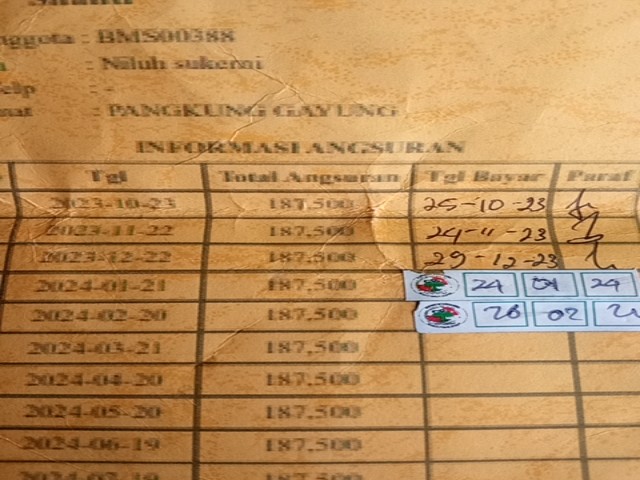 nggota : BMS00388
: Niluh sukerni
elp : -
mat : PANGKUNG GAYUNG
INFORMASI ANGSURAN
Tgl Total Angsuran Tgl Bayar Paraf
2023-10-23 187,500 25-10-23
2023-11-22 187,500 24-11-23
2023-12-22 187,500 29-12-23
2024-01-21 187,500 24 01 24
2024-02-20 187,500 26 02
2024-03-21 187,500
2024-04-20 187,500
2024-05-20 187,500
2024-06-19 187,500
2024-07-19 187,500